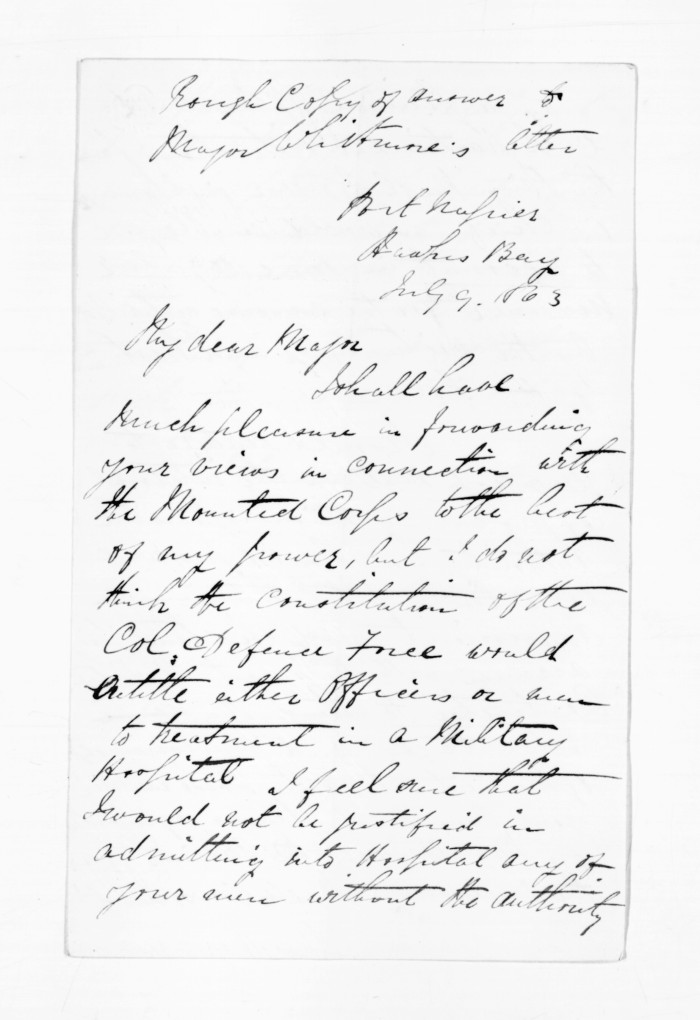 Rough Copy of answer to
Major Whitmore's letter
Port Napier
Hawkes Bay
July 9. 1863
My dear Major
I shall have
much pleasure in forwarding
your views in connection with
the Mounted Corps to the best
of my power, but I do not
think the constitution of the
Col. Defence Force would
entitle either Officers or men
to treatment in a Military
Hospital I feel sure that
I would not be justified in
admitting into Hospital any of
your men without the authority